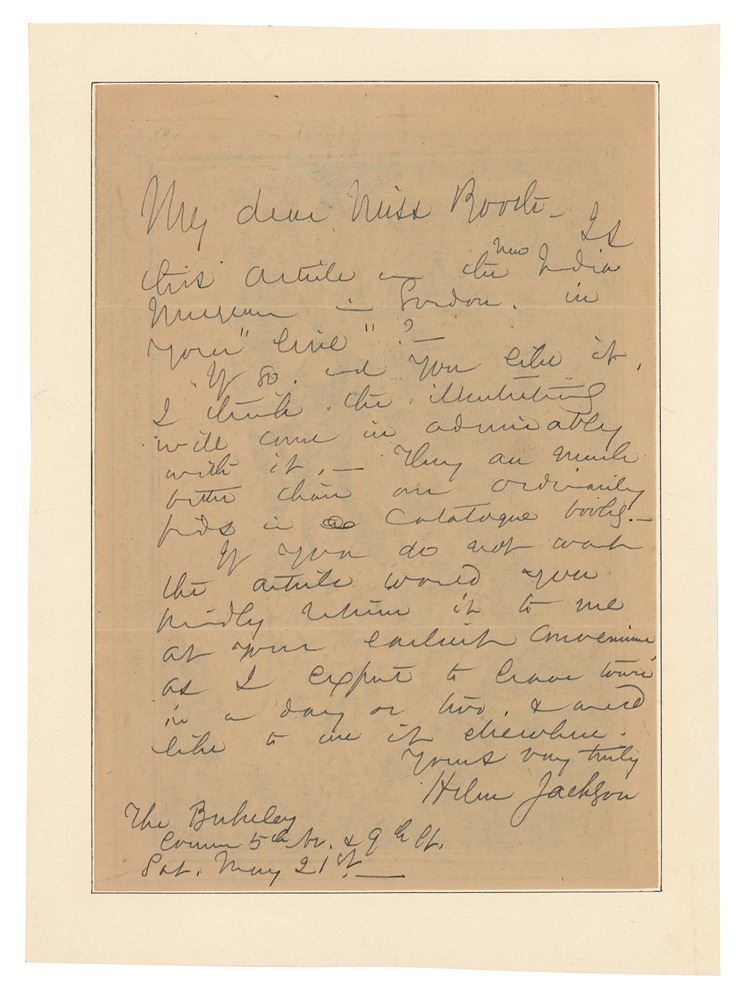 My dear Miss Booth — Is
this article on the New India
Museum in London, in
your "line"? —
If so, and you like it,
I think the illustrations
will come in admirably
with it, — They are much
better than one ordinarily
finds in catalogue books. —
If you do not want
the article would you
kindly return it to me
at your earliest convenience,
as I expect to leave town
in a day or two, & would
like to use it elsewhere.
Yours very truly
Helen Jackson
The Berkeley
Corner 5th Av. & 9th St.
Sat. May 21st. —